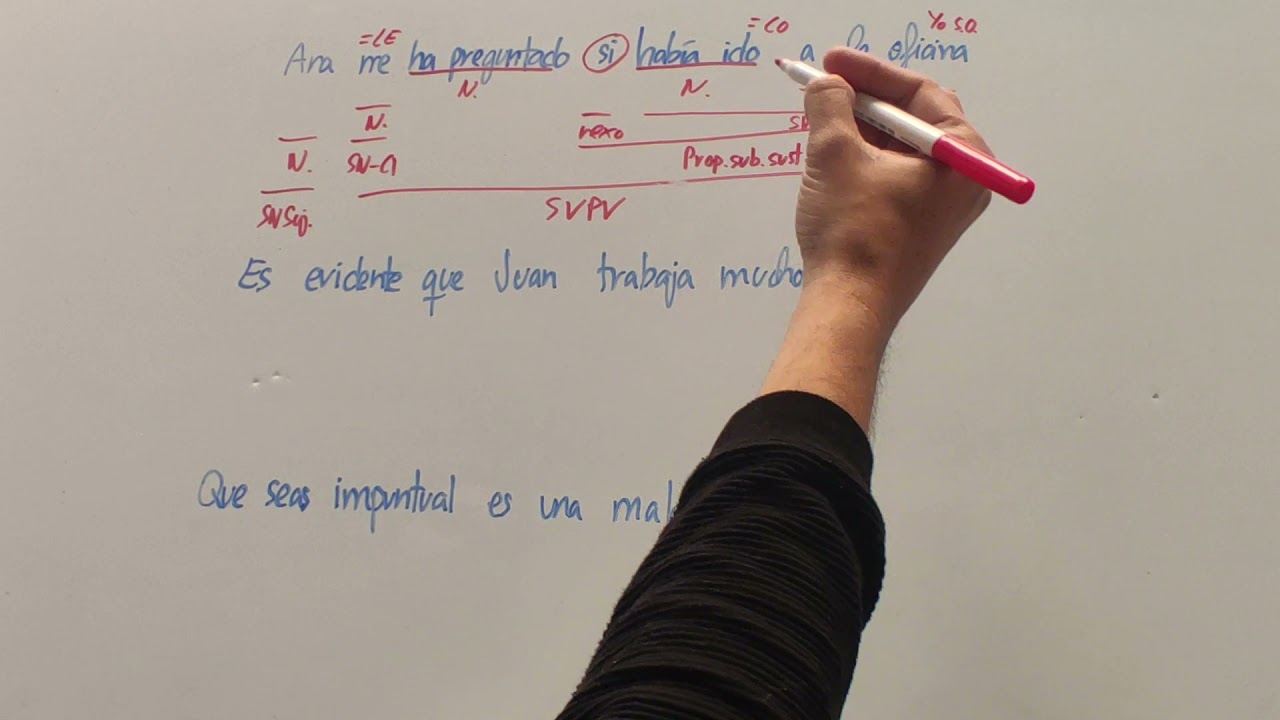 =LE =CO Yo S.O.
Ana me ha preguntado si había ido a la oficina
N. N.
N. nexo
N. SN-CI Prop.sub.sust
SNSuj. SVPV
Es evidente que Juan trabaja mucho
Que seas impuntual es una